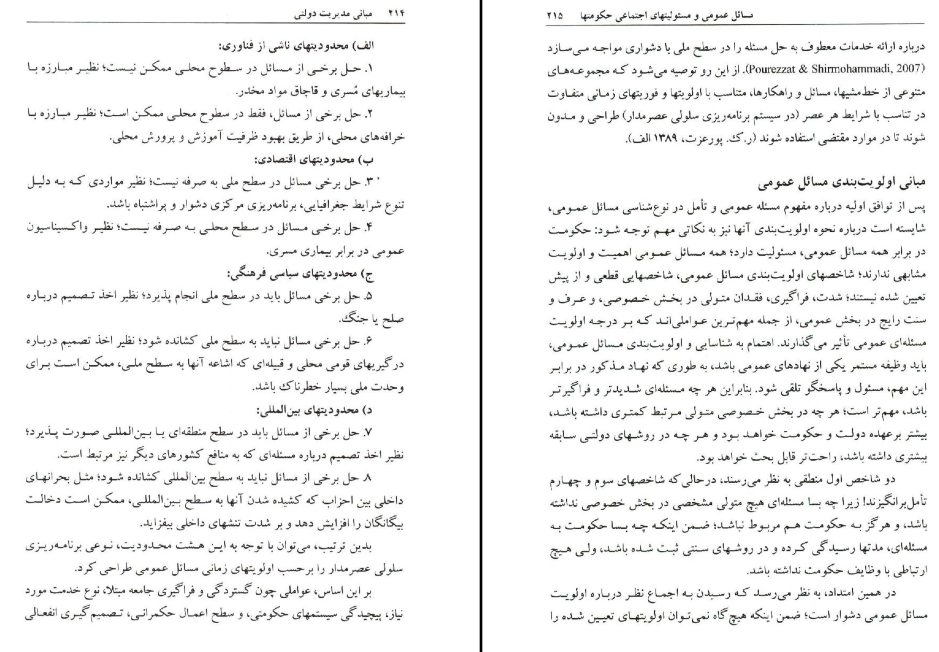 ۲۱۴ مبانی مدیریت دولتی
الف) محدودیتهای ناشی از فناوری:
۱. حل برخی از مسائل در سطوح محلی ممکن نیست؛ نظیر مبارزه با
بیماریهای مُسری و قاچاق مواد مخدر.
۲. حل برخی از مسائل، فقط در سطوح محلی ممکن است؛ نظیر مبارزه با
خرافه‌های محلی، از طریق بهبود ظرفیت آموزش و پرورش محلی.
ب) محدودیتهای اقتصادی:
۳. حل برخی مسائل در سطح ملی به صرفه نیست؛ نظیر مواردی که به دلیل
تنوع شرایط جغرافیایی، برنامه‌ریزی مرکزی دشوار و پراشتباه باشد.
۴. حل برخی مسائل در سطح محلی به صرفه نیست؛ نظیر واکسیناسیون
عمومی در برابر بیماری مسری.
ج) محدودیتهای سیاسی فرهنگی:
۵. حل برخی مسائل باید در سطح ملی انجام پذیرد؛ نظیر اخذ تصمیم درباره
صلح یا جنگ.
۶. حل برخی مسائل نباید به سطح ملی کشانده شود؛ نظیر اخذ تصمیم درباره
درگیریهای قومی محلی و قبیله‌ای که اشاعه آنها به سطح ملی، ممکن است برای
وحدت ملی بسیار خطرناک باشد.
د) محدودیتهای بین‌المللی:
۷. حل برخی از مسائل باید در سطح منطقه‌ای یا بین‌المللی صورت پذیرد؛
نظیر اخذ تصمیم درباره مسئله‌ای که به منافع کشورهای دیگر نیز مرتبط است.
۸ حل برخی از مسائل نباید به سطح بین‌المللی کشانده شود؛ مثل بحرانهای
داخلی بین احزاب که کشیده شدن آنها به سطح بین‌المللی، ممکن است دخالت
بیگانگان را افزایش دهد و بر شدت تنشهای داخلی بیفزاید.
بدین ترتیب، می‌توان با توجه به این هشت محدودیت، نوعی برنامه‌ریزی
سلولی عصرمدار را برحسب اولویتهای زمانی مسائل عمومی طراحی کرد.
بر این اساس، عواملی چون گستردگی و فراگیری جامعه مبتلا، نوع خدمت مورد
نیاز، پیچیدگی سیستمهای حکومتی، و سطح اعمال حکمرانی، تصمیم‌گیری انفعالی
مسائل عمومی و مسئولیتهای اجتماعی حکومتها ۲۱۵
درباره ارائه خدمات معطوف به حل مسئله را در سطح ملی با دشواری مواجه می‌سازد
(Pourezzat & Shirmohammadi, 2007). از این رو توصیه می‌شود که مجموعه‌های
متنوعی از خط‌مشیها، مسائل و راهکارها، متناسب با اولویتها و فوریتهای زمانی متفاوت
در تناسب با شرایط هر عصر (در سیستم برنامه‌ریزی سلولی عصرمدار) طراحی و مدون
شوند تا در موارد مقتضی استفاده شوند (ر.ک. پورعزت، ۱۳۸۹ الف).
مبانی اولویت‌بندی مسائل عمومی
پس از توافق اولیه درباره مفهوم مسئله عمومی و تأمل در نوع‌شناسی مسائل عمومی،
شایسته است درباره نحوه اولویت‌بندی آنها نیز به نکاتی مهم توجه شود: حکومت
در برابر همه مسائل عمومی، مسئولیت دارد؛ همه مسائل عمومی اهمیت و اولویت
مشابهی ندارند؛ شاخصهای اولویت‌بندی مسائل عمومی، شاخصهایی قطعی و از پیش
تعیین شده نیستند؛ شدت، فراگیری، فقدان متولی در بخش خصوصی، و عرف و
سنت رایج در بخش عمومی، از جمله مهم‌ترین عواملی‌اند که بر درجه اولویت
مسئله‌ای عمومی تأثیر می‌گذارند. اهتمام به شناسایی و اولویت‌بندی مسائل عمومی،
باید وظیفه مستمر یکی از نهادهای عمومی باشد، به طوری که نهاد مذکور در برابر
این مهم، مسئول و پاسخگو تلقی شود. بنابراین هر چه مسئله‌ای شدیدتر و فراگیرتر
باشد، مهم‌تر است؛ هر چه در بخش خصوصی متولی مرتبط کمتری داشته باشد،
بیشتر برعهده دولت و حکومت خواهد بود و هر چه در روشهای دولتی سابقه
بیشتری داشته باشد، راحت‌تر قابل بحث خواهد بود.
دو شاخص اول منطقی به نظر می‌رسند، درحالی‌که شاخصهای سوم و چهارم
تأمل‌برانگیزند! زیرا چه بسا مسئله‌ای هیچ متولی مشخصی در بخش خصوصی نداشته
باشد، و هرگز به حکومت هم مربوط نباشد؛ ضمن اینکه چه بسا حکومت به
مسئله‌ای، مدتها رسیدگی کرده و در روشهای سنتی ثبت شده باشد، ولی هیچ
ارتباطی با وظایف حکومت نداشته باشد.
در همین امتداد، به نظر می‌رسد که رسیدن به اجماع نظر درباره اولویت
مسائل عمومی دشوار است؛ ضمن اینکه هیچ‌گاه نمی‌توان اولویتهای تعیین شده را